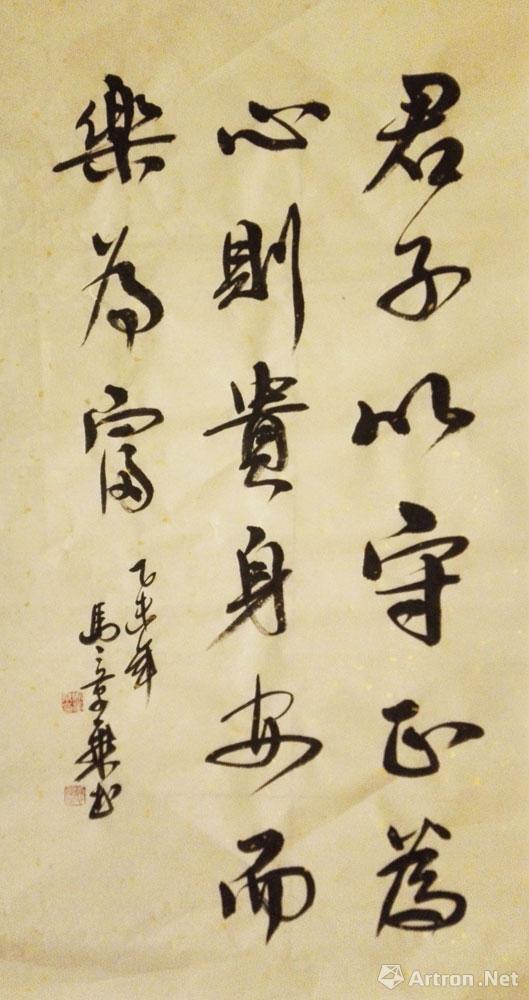 君子以守正為
心則貴身安而
樂為富
乙未年
馬章乘书
Artron.Net